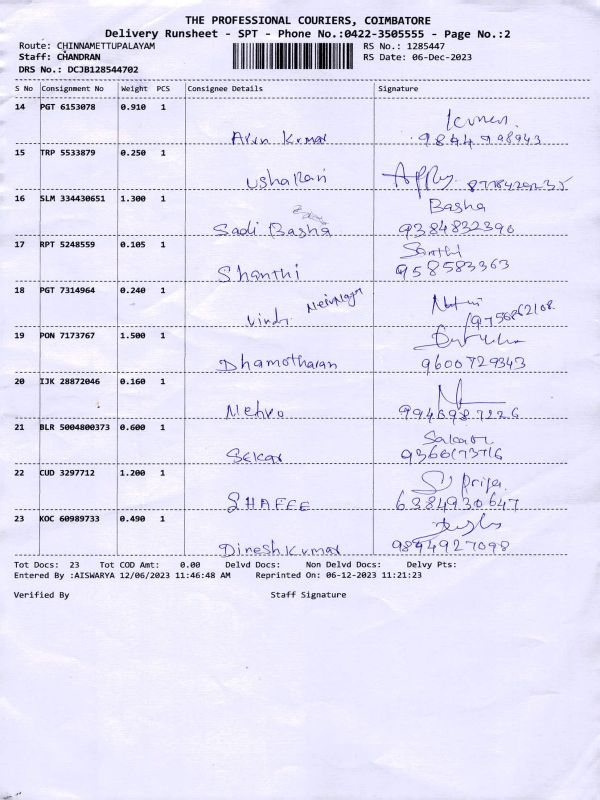 THE PROFESSIONAL COURIERS, COIMBATORE
Delivery Runsheet - SPT - Phone No.:0422-3505555 - Page No.:2
Route: CHINNAMETTUPALAYAM RS No.: 1285447
Staff: CHANDRAN RS Date: 06-Dec-2023
DRS No.: DCJB128544702
S No Consignment No Weight PCS Consignee Details Signature
14 PGT 6153078 0.910 1
Arun Kumar
15 TRP 5533879 0.250 1
Usha Rani
16 SLM 334430651 1.300 1 Basha
Sadi Basha 9384832390
17 RPT 5248559 0.105 1 Santhi
Shanthi 958583363
18 PGT 7314964 0.240 1
19 PON 7173767 1.500 1
Dhamotharan 9600729343
20 IJK 28872046 0.160 1
Nehro 9946987226
21 BLR 5004800373 0.600 1
Sekar
22 CUD 3297712 1.200 1 Priya
SHAFEE 6384930647
23 KOC 60989733 0.490 1
Dinesh Kumar 9894927098
Tot Docs: 23 Tot COD Amt: 0.00 Delvd Docs: Non Delvd Docs: Delvy Pts:
Entered By :AISWARYA 12/06/2023 11:46:48 AM Reprinted On: 06-12-2023 11:21:23
Verified By Staff Signature